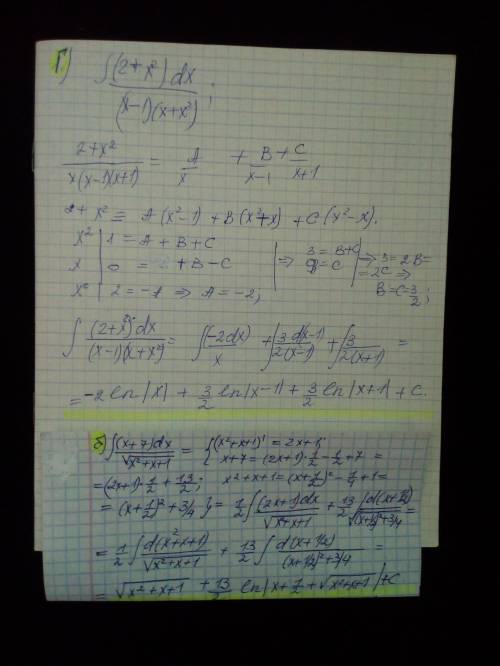 Г) ∫ (2+x²) dx / (x-1)(x+x²) ;
2+x² / x(x-1)(x+1) = A/x + B/x-1 + C/x+1
2+x² ≡ A(x²-1) + B(x²+x) + C(x²-x).
x² | 1 = A+B+C
x | 0 = B-C
x⁰ | 2 = -A ⇒ A = -2,
⇒ 3 = B+C
B = C
⇒ 3 = 2B =
= 2C ⇒
B=C=3/2 ;
∫ (2+x²)dx / (x-1)(x+x²) = ∫ (-2dx)/x + ∫ 3 d(x-1) / 2(x-1) + ∫ 3 / 2(x+1) =
= -2 ln|x| + 3/2 ln|x-1| + 3/2 ln|x+1| + C.
б) ∫ (x+7)dx / √x²+x+1 = { (x²+x+1)' = 2x+1;
x+7 = (2x+1)·1/2 - 1/2 + 7 =
= (2x+1)·1/2 + 13/2 ; x²+x+1 = (x+1/2)² - 1/4 + 1 =
= (x+1/2)² + 3/4 } = 1/2 ∫ (2x+1)dx / √x²+x+1 + 13/2 ∫ d(x+1/2) / √(x+1/2)²+3/4 =
= 1/2 ∫ d(x²+x+1) / √x²+x+1 + 13/2 ∫ d(x+1/2) / (x+1/2)²+3/4 =
= √x²+x+1 + 13/2 ln|x+1/2+√x²+x+1|+C